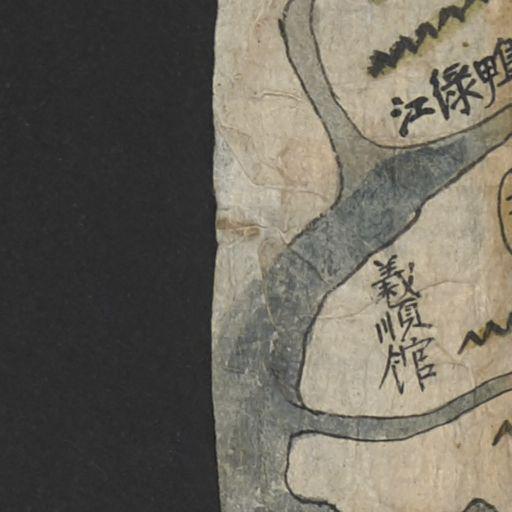 鴨綠江
義順館